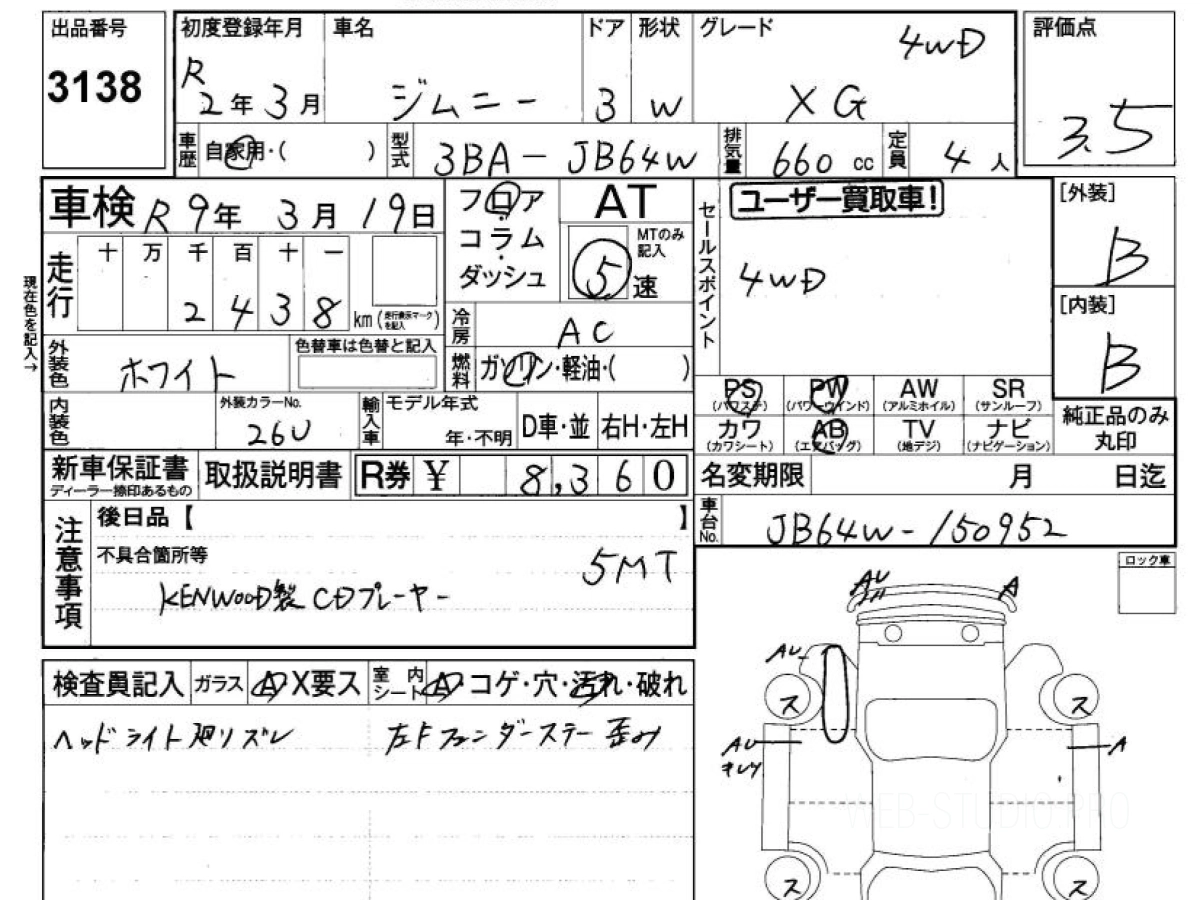 出品番号
3138
初度登録年月
R
2年 3月
車名
ジムニー
ドア
3
形状
W
グレード
4WD
XG
評価点
3.5
車歴
自家用・( )
型式
3BA-JB64W
排気量
660 cc
定員
4 人
車検 R 9年 3月 19日
フロア
コラム
ダッシュ
AT
MTのみ
記入
5 速
セールスポイント
ユーザー買取車!
4WD
[外装]
B
[内装]
B
現在色を記入→
走行
十 万 千 百 十 一
2 4 3 8
km (走行表示マークを記入)
冷房
AC
外装色
ホワイト
色替車は色替と記入
燃料
ガソリン・軽油・( )
PS
(パワステ)
PW
(パワーウインド)
AW
(アルミホイル)
SR
(サンルーフ)
カワ
(カワシート)
AB
(エアバッグ)
TV
(地デジ)
ナビ
(ナビゲーション)
純正品のみ
丸印
内装色
外装カラーNo.
26U
輸入車
モデル年式
年・不明
D車・並
右H・左H
新車保証書
ディーラー捺印あるもの
取扱説明書
R券 ¥ 8,360
名変期限 月 日迄
車台No.
JB64W-150952
注意事項
後日品【 】
不具合箇所等
5MT
KENWOOD製CDプレーヤー
ロック車
検査員記入
ガラス
A X要ス
室内シート
A・コゲ・穴・汚れ・破れ
ヘッドライト廻りズレ
左Fフェンダーステー歪み
AU
A
AU
ス
ス
AU
キレツ
A
ス
ス
WEB-STUDIO.PRO